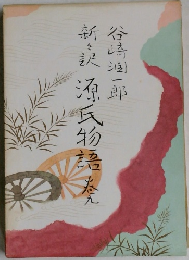 谷崎潤一郎
新々訳
源氏物語 巻九